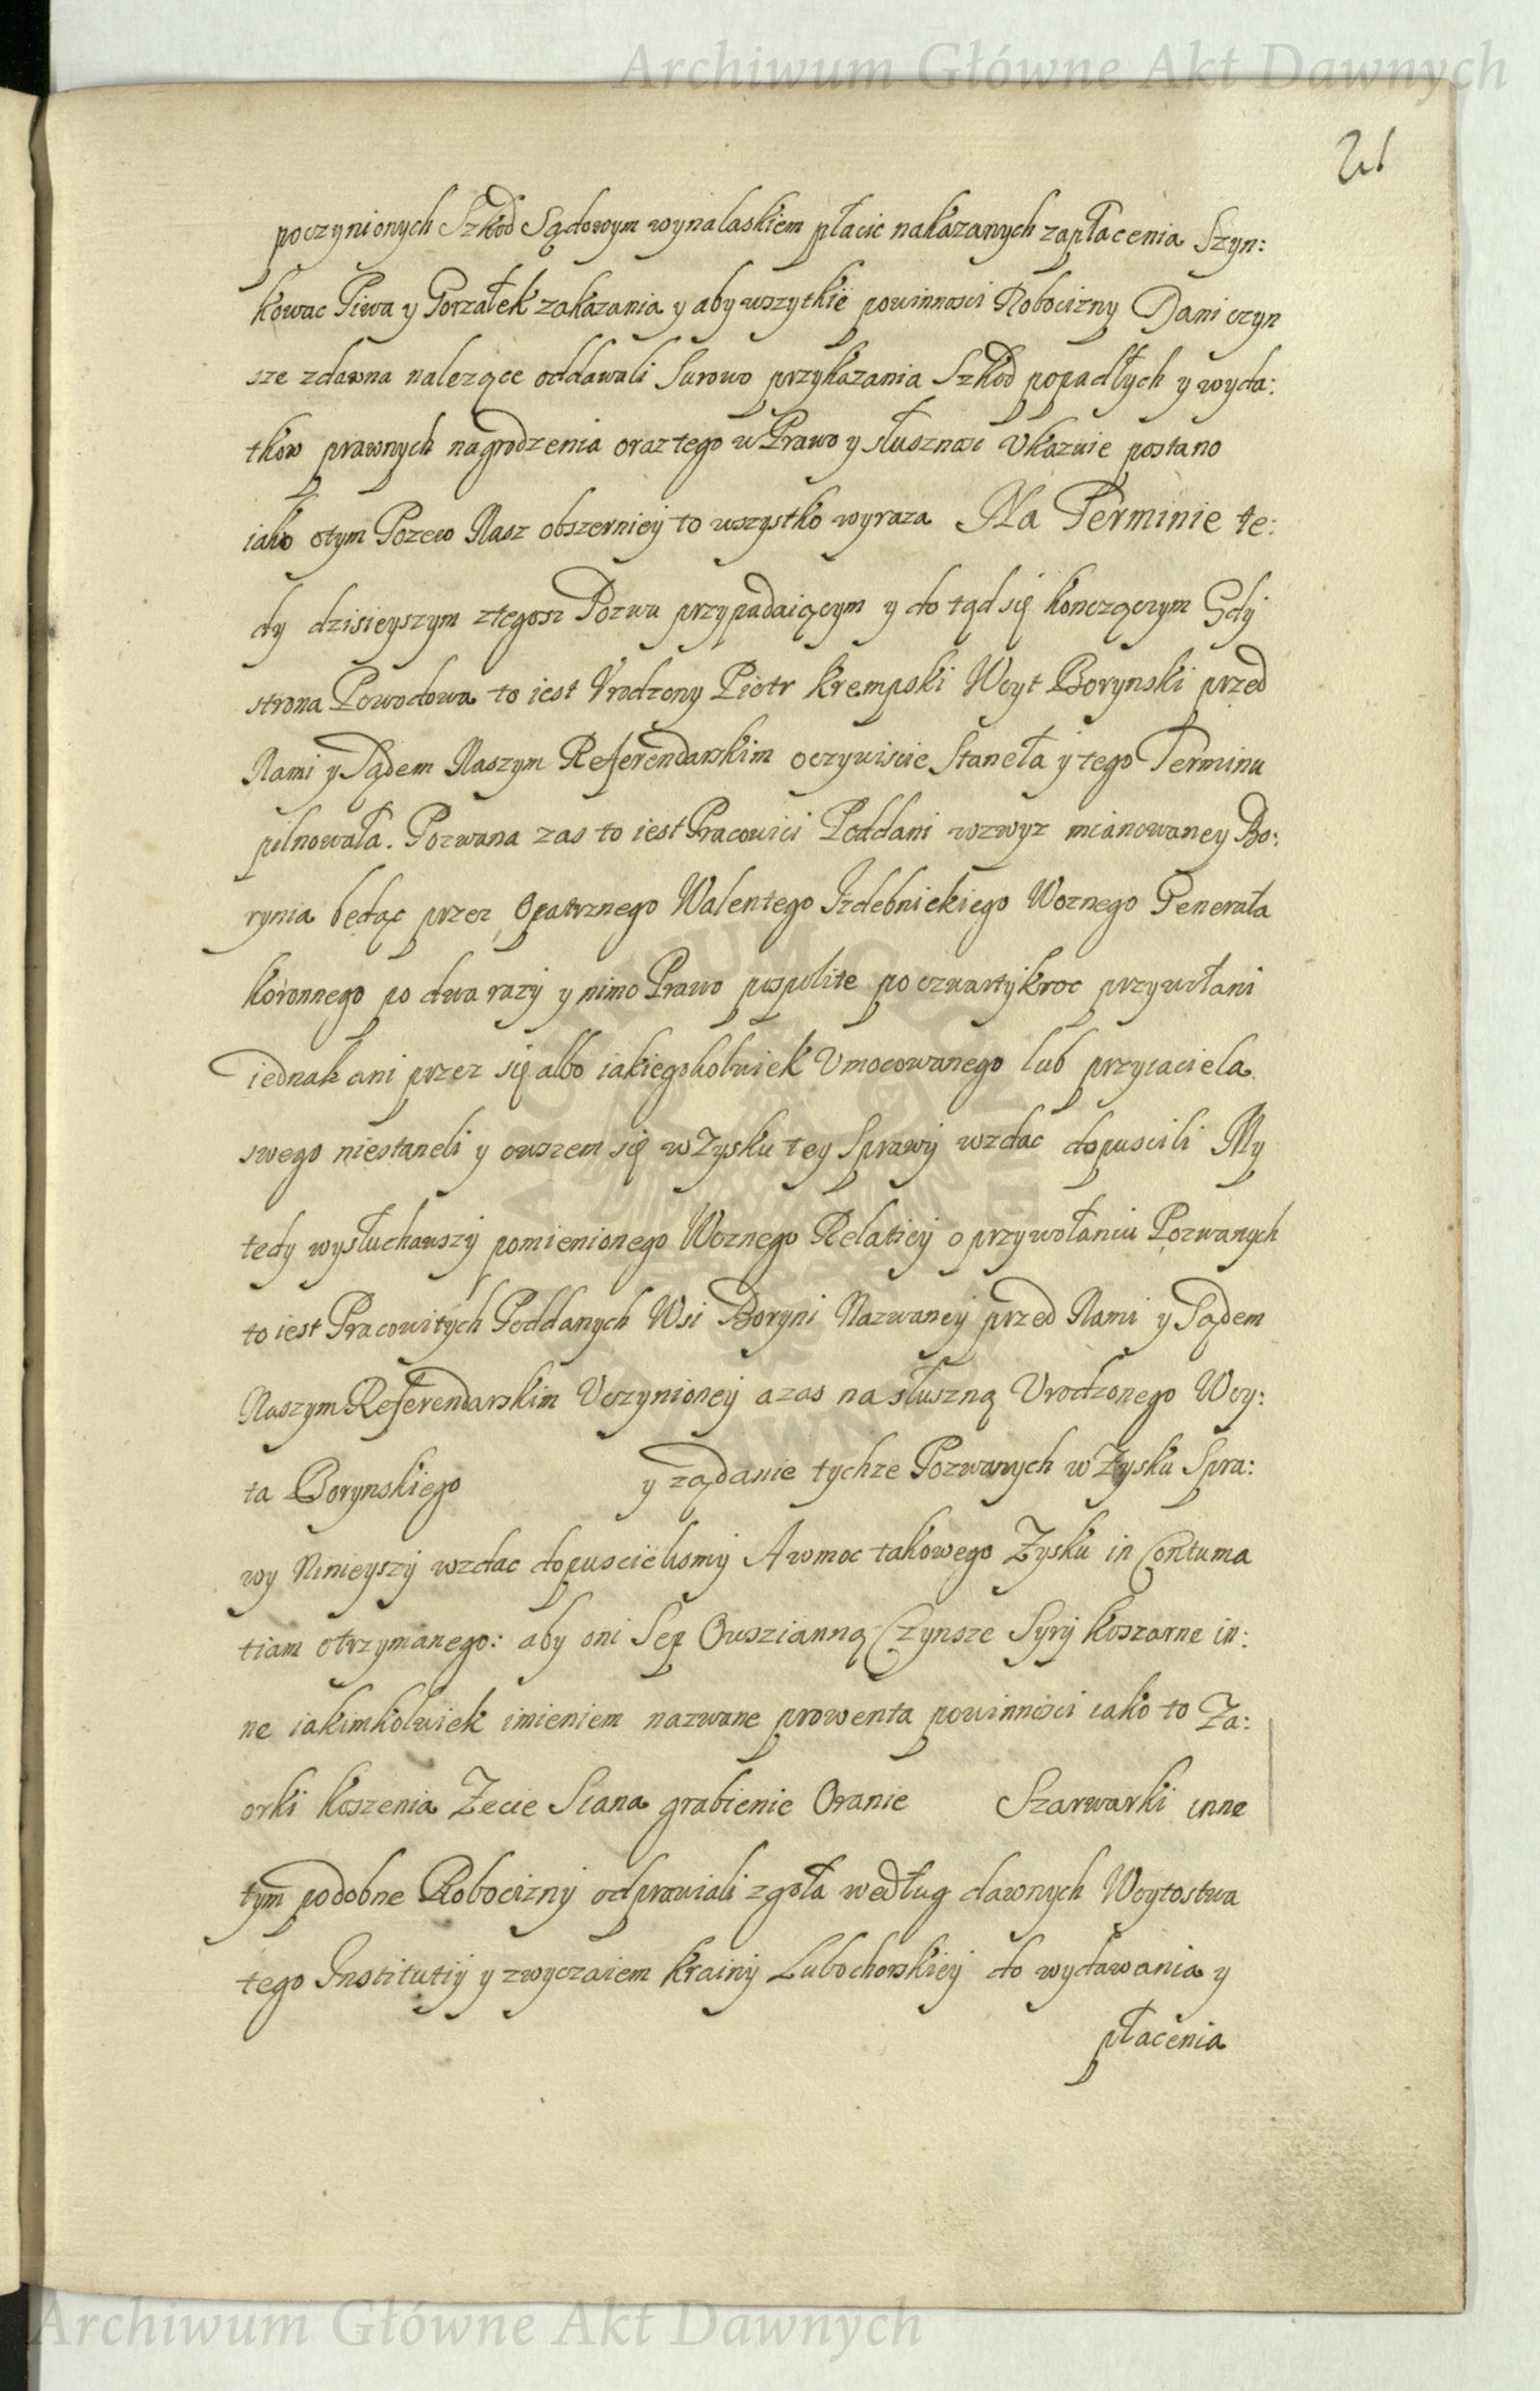 Archiwum Główne Akt Dawnych
21
poczynionych Szkod Sądowym wynalaskiem płacic nakazanych zapłacenia Szyn:
kowac Piwa y Gorzałek zakazania y aby wszytkie powinnosci Robocizny Dani czyn
sze zdawna nalezące oddawali Surowo przykazania Szkod popadłych y wyda:
tkow prawnych nagrodzenia oraz tego w Prawo y słusznosc Vkazuie postano
iako otym Pozew Nasz obszerniey to wszystko wyraza Na Terminie te:
dy dzisieyszym ztegosz Pozwu przypadaiącym y do tąd się konczączym Gdy
strona Powodowa to iest Vrodzony Piotr Krempski Woyt Borynski przed
Nami y Sądem Naszym Referendarskim oczywiscie Staneła y tego Terminu
pilnowała. Pozwana zas to iest Pracowici Poddani wzwyz mianowaney Bo:
rynia będąc przez Opatrznego Walentego Izdebnickiego Woznego Generała
koronnego po dwa razy y nimo Prawo pospolite po czwartykroc przywołani
iednak ani przez się albo iakiegokolwiek Vmocowanego lub przyiaciela
swego niestaneli y owszem się w Zysku tey Sprawy wzdac dopuscili My
tedy wysłuchawszy pomienionego Woznego Relatiey o przywołaniu Pozwanych
to iest Pracowitych Poddanych Wsi Boryni Nazwaney przed Nami y Sądem
Naszym Referendarskim Vczynioney a zas na słuszną Vrodzonego Woy:
ta Borynskiego y ządanie tychze Pozwanych w Zysku Spra:
wy Ninieyszy wzdac dopuscielismy A wmoc takowego Zysku in Contuma
tiam otrzymanego: aby oni Sep Owszianną Czynsze Syry koszarne in:
ne iakimkolwiek imieniem nazwane prowenta powinnosci iako to Za:
orki koszenia Zecie Siana grabienie Oranie Szarwarki inne
tym podobne Robocizny odprawiali zgoła według dawnych Woytostwa
tego Institutiy y zwyczaiem krainy Lubochorskiey do wydawania y
płacenia
Archiwum Główne Akt Dawnych